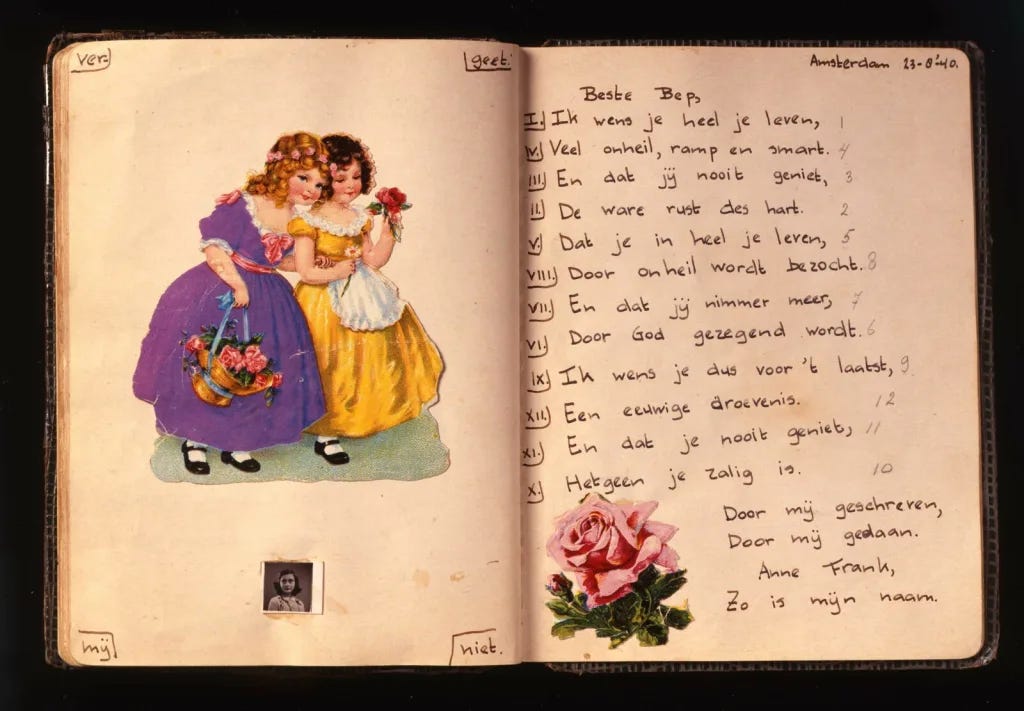 ver-
geet.
mij
niet.
Amsterdam 23-8-'40.
Beste Bep,
I. Ik wens je heel je leven, 1
IV. Veel onheil, ramp en smart. 4
III. En dat jij nooit geniet, 3
II. De ware rust des hart. 2
V. Dat je in heel je leven, 5
VIII. Door onheil wordt bezocht. 8
VII. En dat jij nimmer meer, 7
VI. Door God gezegend wordt. 6
IX. Ik wens je dus voor 't laatst, 9
XII. Een eeuwige droevenis. 12
XI. En dat je nooit geniet, 11
X. Hetgeen je zalig is. 10
Door mij geschreven,
Door mij gedaan.
Anne Frank,
Zo is mijn naam.